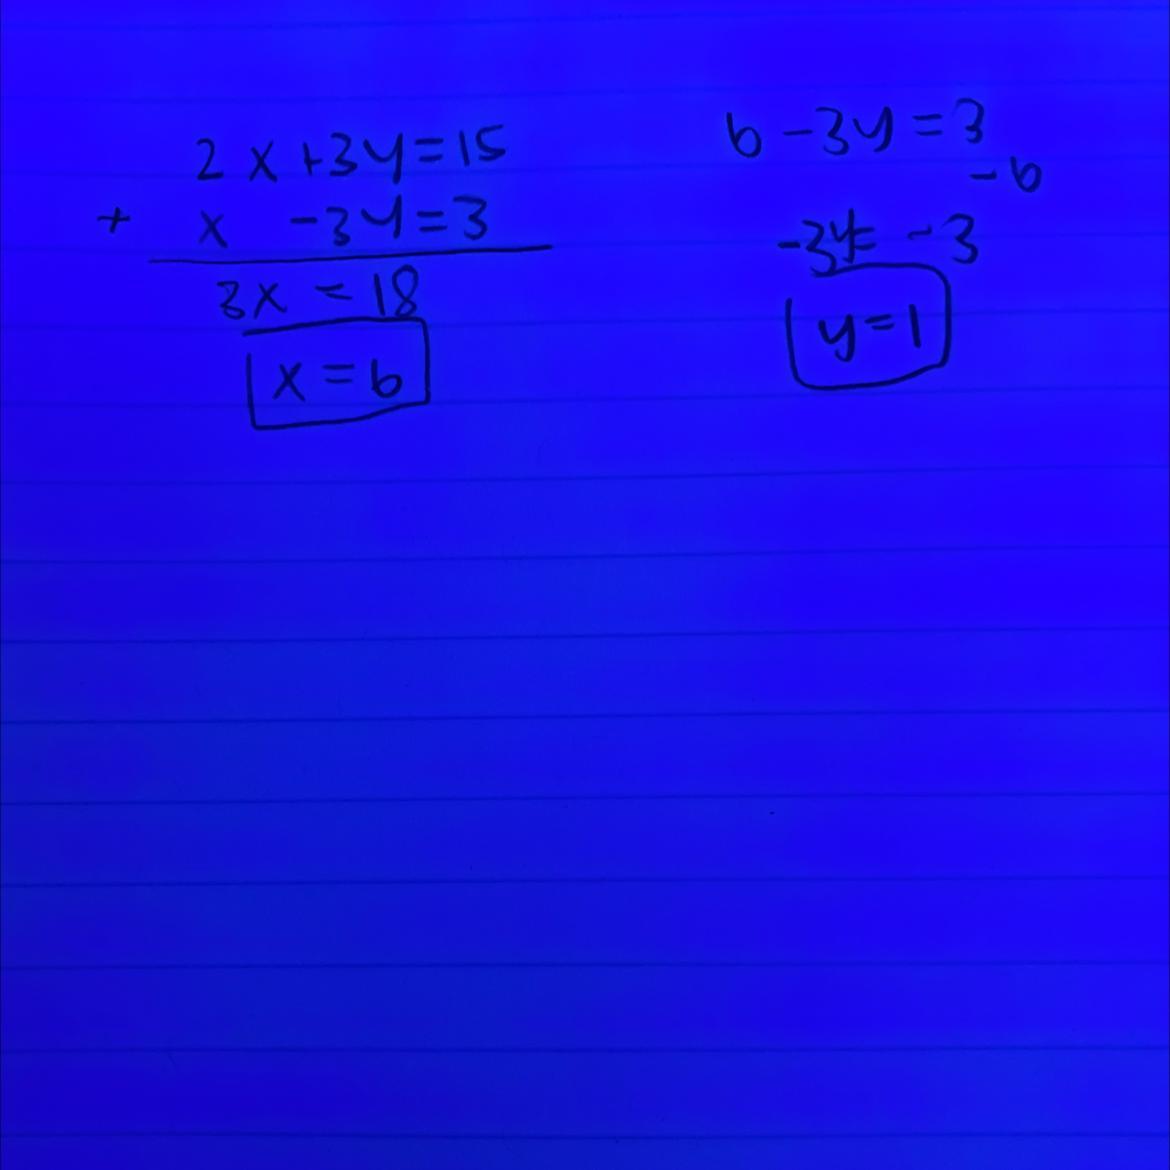 2x+3y=15
+ x -3y=3
3x = 18
x = 6
6-3y=3
-6
-3y= -3
y=1